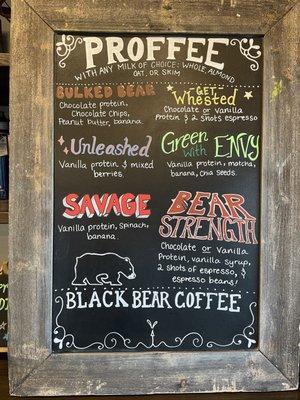 PROFFEE
WITH ANY MILK OF CHOICE: WHOLE, ALMOND
OAT, OR SKIM
BULKED BEAR
Chocolate protein,
Chocolate Chips,
Peanut butter, banana.
GET
Whested
Chocolate or Vanilla
protein & 2 shots espresso
Unleashed
Vanilla protein & mixed
berries.
Green
with ENVY
Vanilla protein, matcha,
banana, chia seeds.
SAVAGE
Vanilla protein, Spinach,
banana.
BEAR
STRENGTH
Chocolate or Vanilla
Protein, vanilla syrup,
2 shots of espresso, &
espresso beans!
BLACK BEAR COFFEE